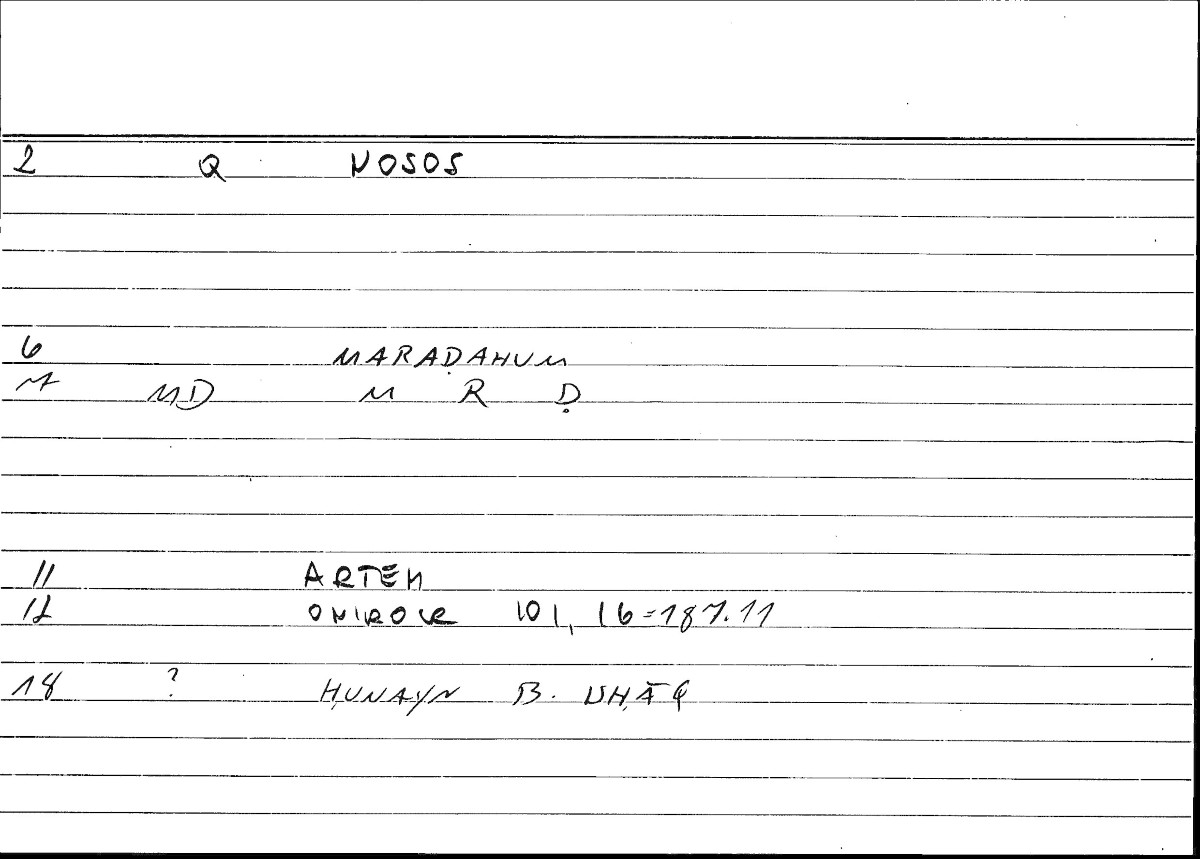 2 Q NOSOS
6 MARAḌAHUM
7 MD M R Ḍ
11 ARTEM
12 ONIROCR 101, 16=187.11
18 ? ḤUNAYN B. ISḤĀQ